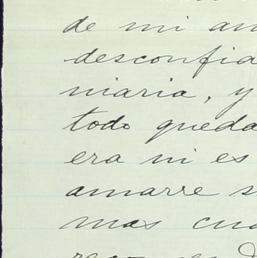 de mi am
desconfia
niaria, y
todo queda
era ni es
amarre s
mas cua